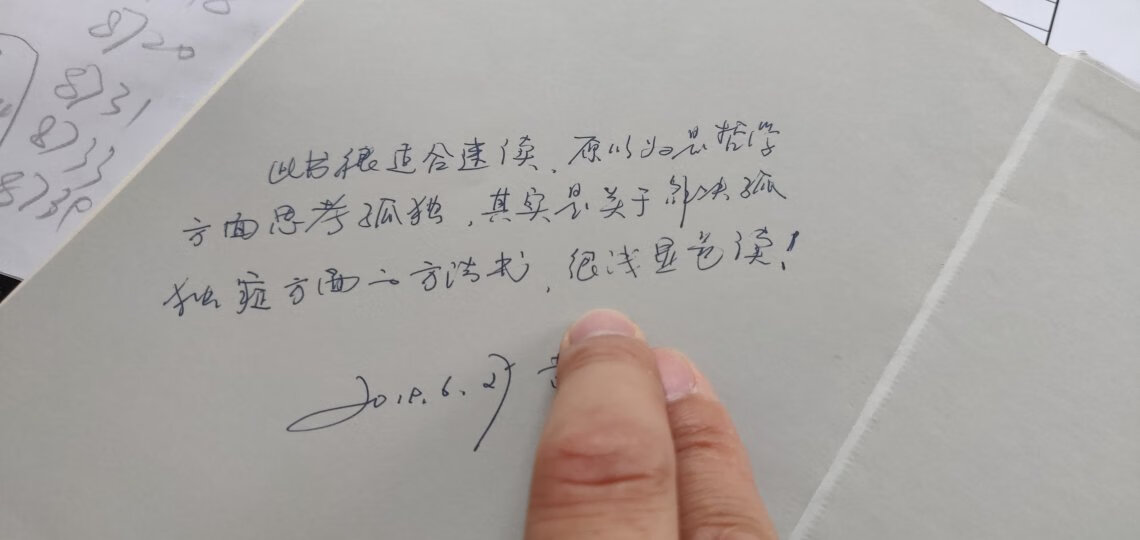 8720
8731
8733
8739
此书很适合速读，原以为是哲学
方面思考孤独，其实是关于解决孤
独症方面的方法书，很浅显易读！
2018.6.27